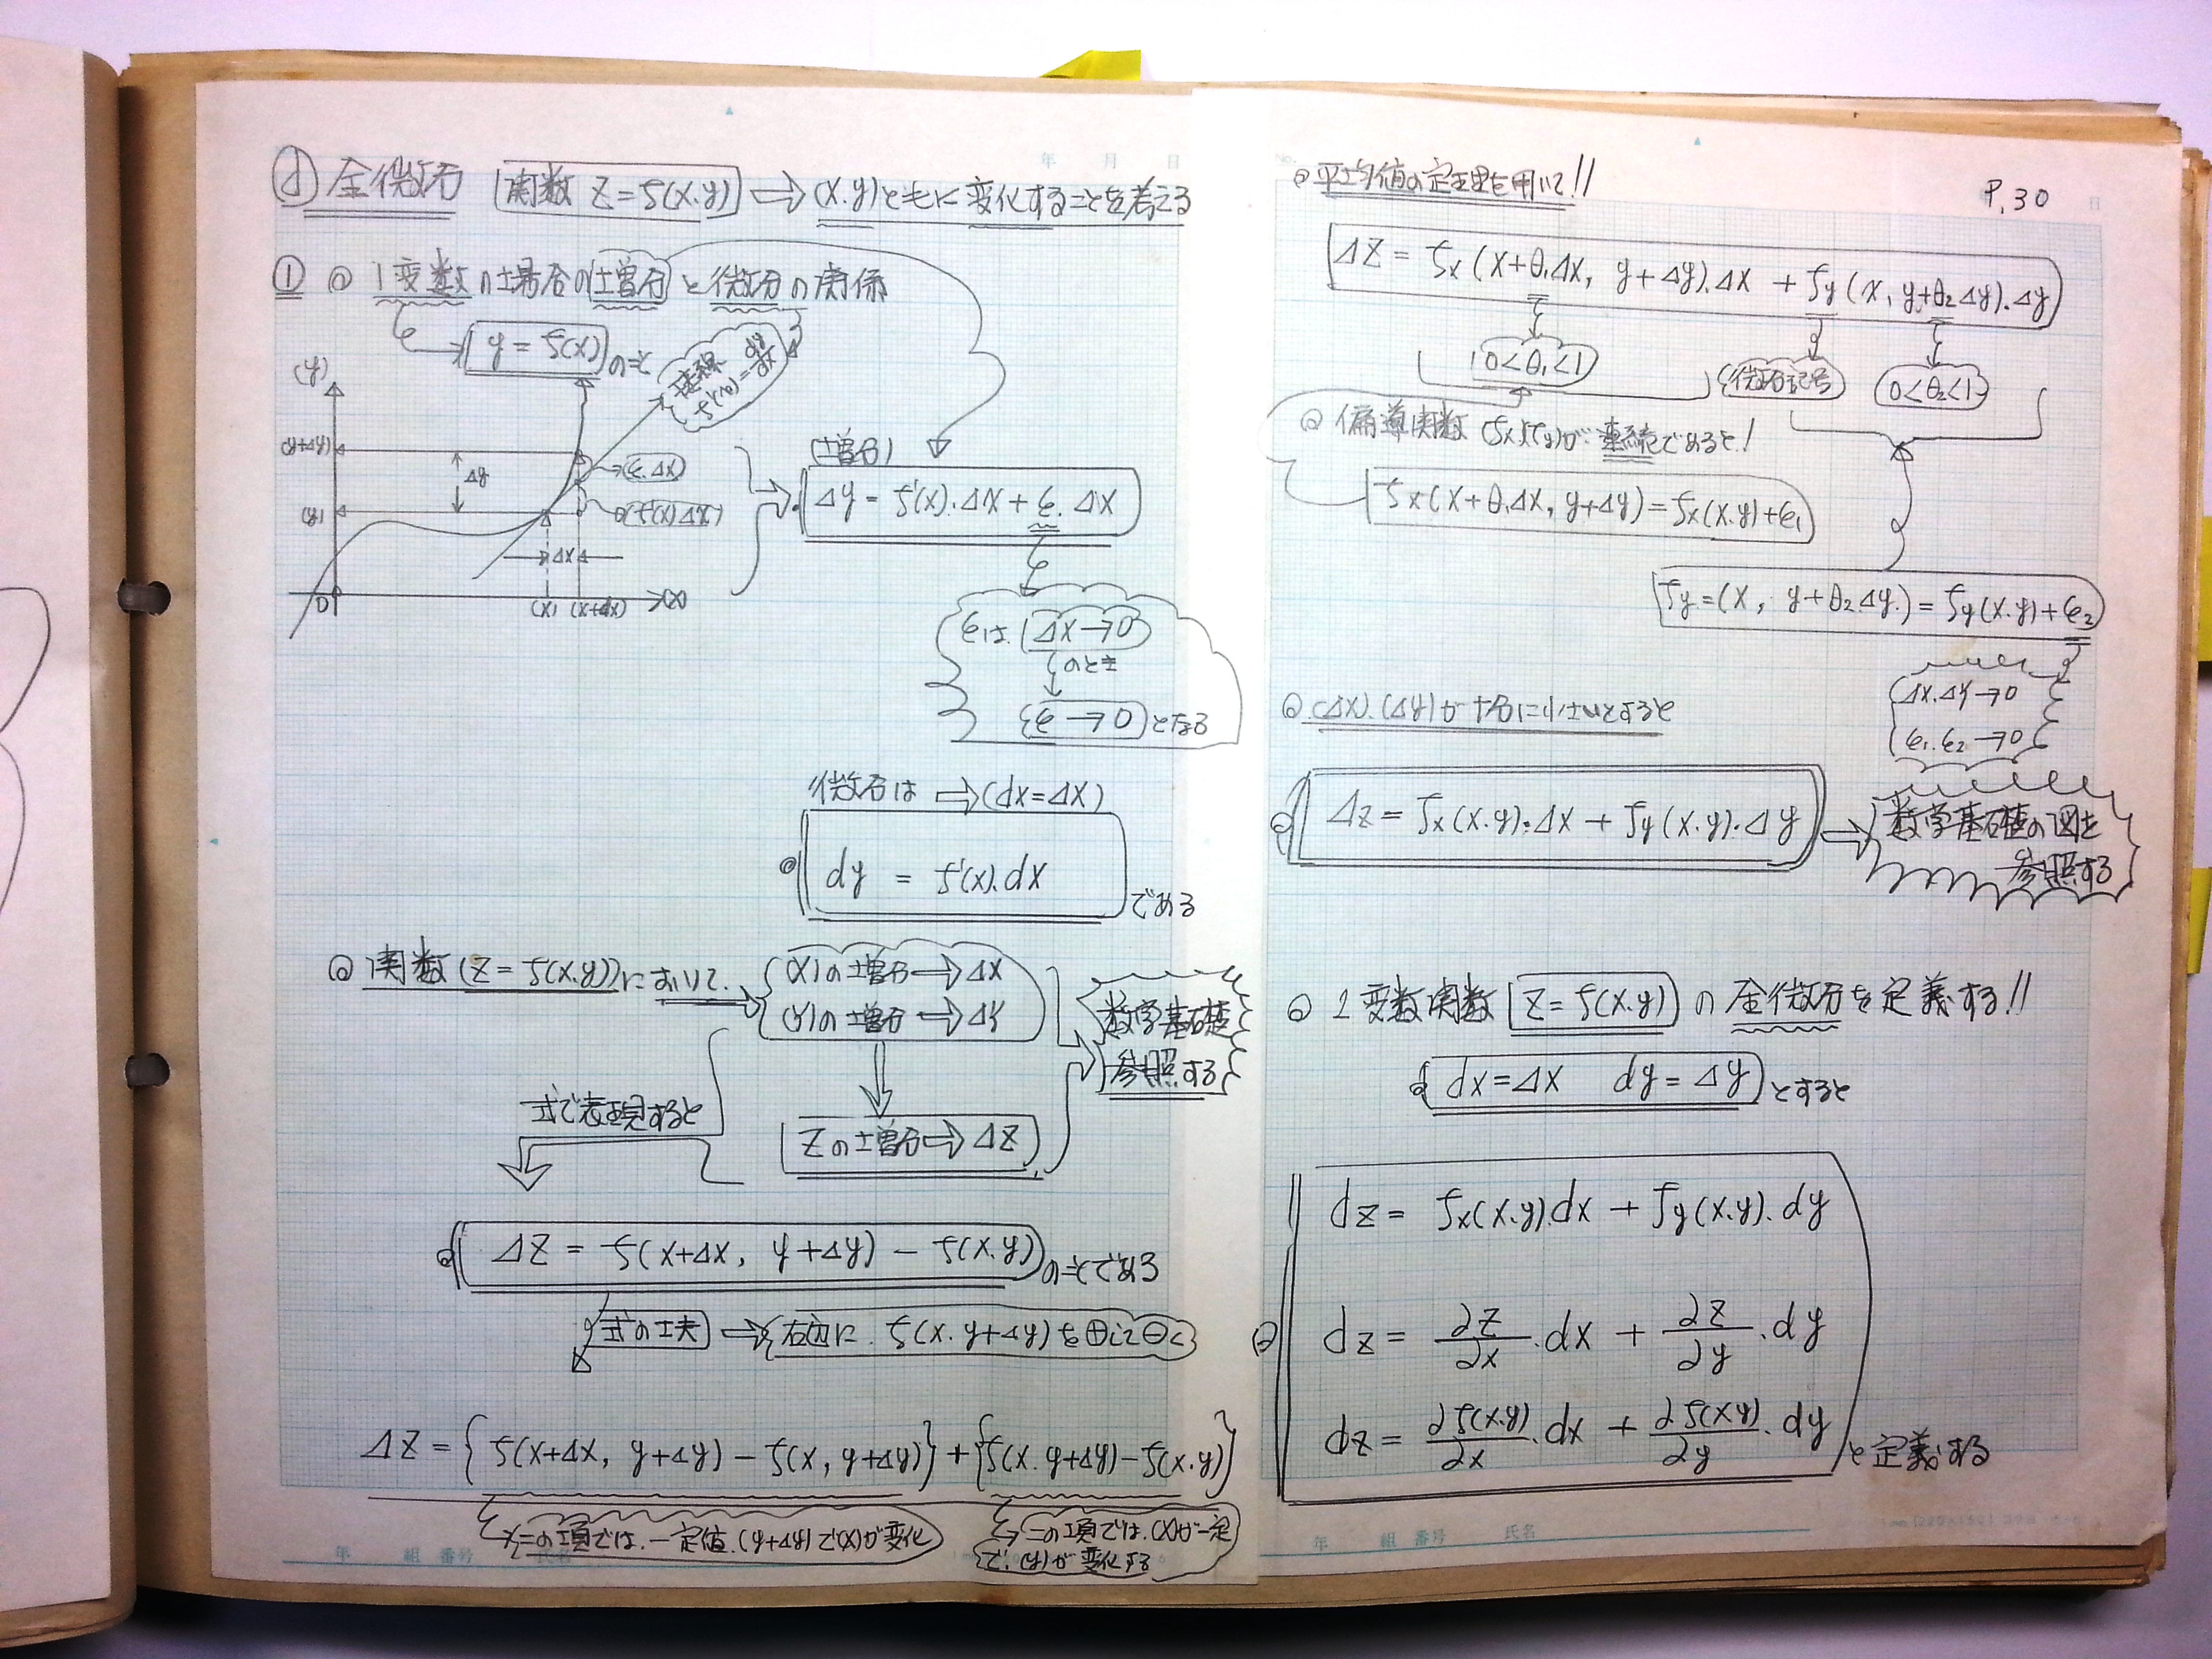 全微分 関数 Z=f(x.y) → (x.y)ともに変化することを考える
① ◎ 1変数の場合の増分と微分の関係
y = f(x) のこと
接線 f'(x) = dy/dx
(y)
(y+Δy)
Δy
(y)
(ε.Δx)
(f'(x)Δx)
Δx
0 (x) (x+Δx) (x)
(増分)
Δy = f'(x).Δx + ε.Δx
εは (Δx→0)
のとき
(ε→0)となる
微分は ⇒ (dx=Δx)
◎ dy = f'(x).dx である
◎ 関数(Z=f(x.y))において、
(x)の増分 → Δx
(y)の増分 → Δy
数学基礎
参照する
式で表現すると
Zの増分 ⇒ ΔZ
◎ ΔZ = f(x+Δx, y+Δy) − f(x.y) のことである
式の工夫 ⇒ 右辺に. f(x.y+Δy)を⊕して⊖く
ΔZ = {f(x+Δx, y+Δy) − f(x, y+Δy)} + {f(x.y+Δy)−f(x.y)}
この項では、一定値.(y+Δy)で(x)が変化
この項では.(x)が一定
で.(y)が変化する
◎ 平均値の定理を用いて!!
P.30
ΔZ = fx(x+θ₁Δx, y+Δy).Δx + fy(x, y+θ₂Δy).Δy
0<θ₁<1
微分記号
0<θ₂<1
◎ 偏導関数 (fx)(fy)が連続であると!
fx(x+θ₁Δx, y+Δy)=fx(x.y)+ε₁
fy=(x, y+θ₂Δy.)=fy(x.y)+ε₂
Δx.Δy→0
ε₁.ε₂→0
◎ (Δx).(Δy)が十分に小さいとすると
◎ Δz = fx(x.y).Δx + fy(x.y).Δy
数学基礎の図を
参照する
◎ 2変数関数 Z=f(x.y) の全微分を定義する!!
◎ dx=Δx dy=Δy とすると
dz = fx(x.y).dx + fy(x.y).dy
◎ dz = ∂z/∂x .dx + ∂z/∂y .dy
dz = ∂f(x.y)/∂x .dx + ∂f(xy)/∂y .dy と定義する